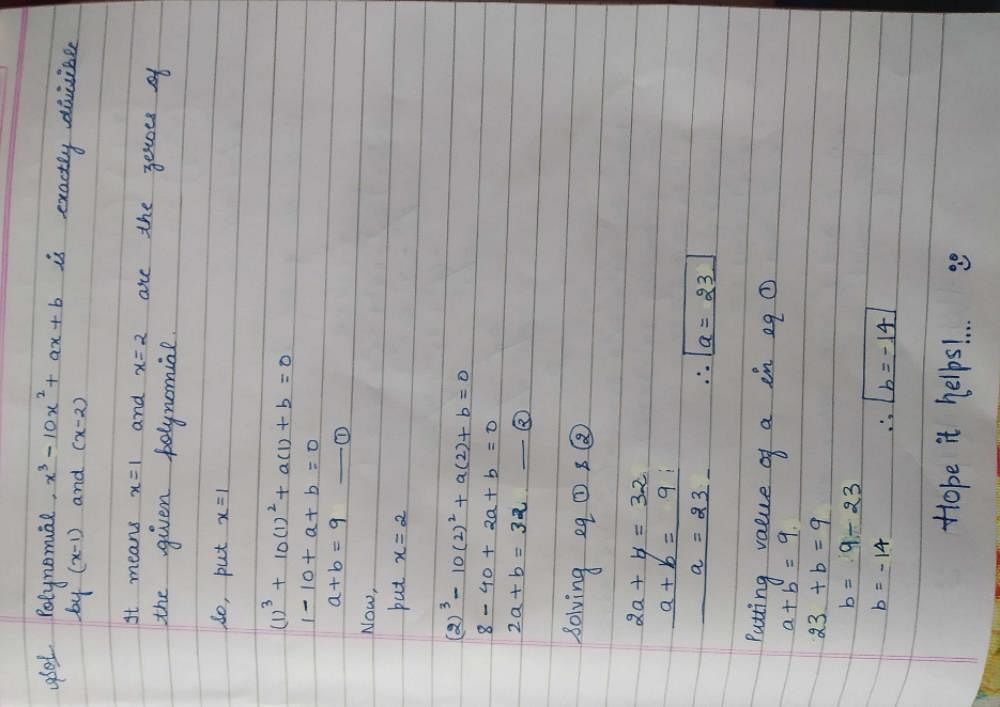 Sol. Polynomial, x³ - 10x² + ax + b is exactly divisible
by (x-1) and (x-2)
It means x=1 and x=2 are the zeroes of
the given polynomial.
So, put x=1
(1)³ + 10(1)² + a(1) + b = 0
1 - 10 + a + b = 0
a + b = 9 — ①
Now,
put x = 2
(2)³ - 10(2)² + a(2) + b = 0
8 - 40 + 2a + b = 0
2a + b = 32 — ②
Solving eq ① & ②
2a + b = 32
a + b = 9
a = 23 ∴ a = 23
Putting value of a in eq ①
a + b = 9
23 + b = 9
b = 9 - 23
b = -14 ∴ b = -14
Hope it helps!...